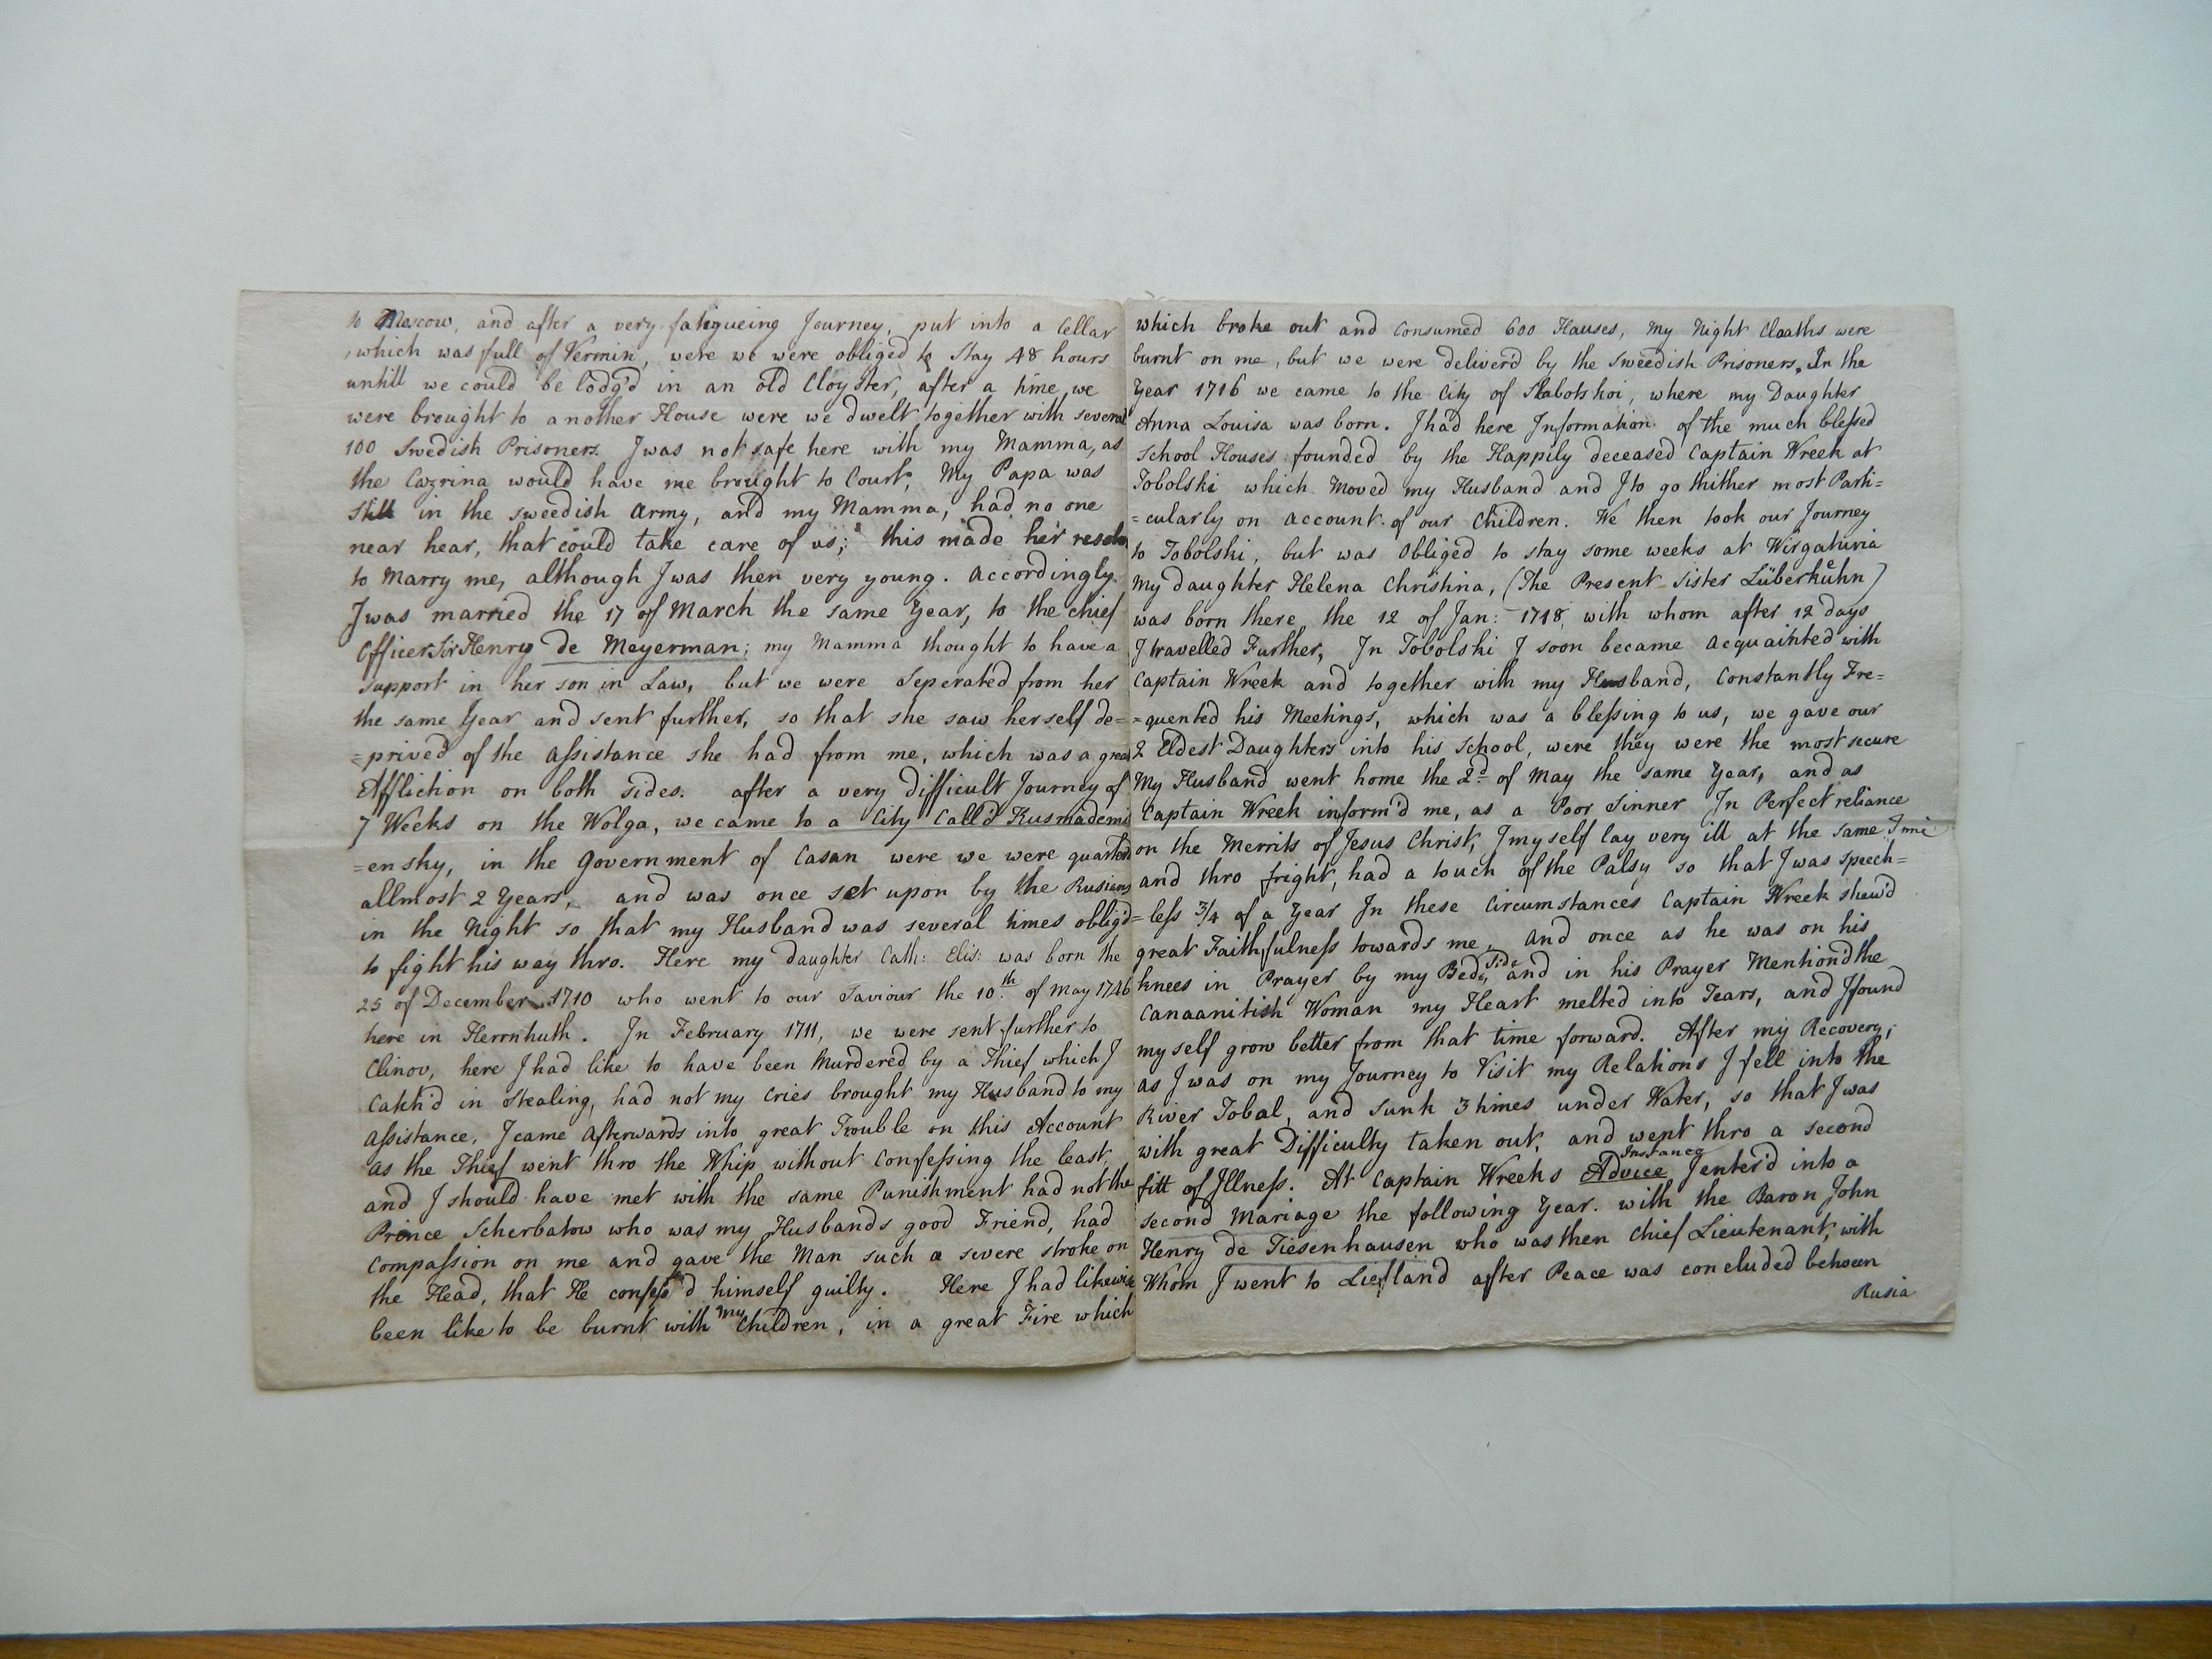 to Moscow, and after a very fatigueing Journey, put into a Cellar
which was full of Vermin, were we were obliged to stay 48 hours
untill we could be lodg'd in an old Cloyster, after a time, we
were brought to another House were we dwelt together with several
100 Swedish Prisoners. I was not safe here with my Mamma, as
the Cazrina would have me brought to Court, My Papa was
still in the Sweedish Army, and my Mamma, had no one
near hear, that could take care of us; this made her
to Marry me, although I was then very young. Accordingly
I was married the 17 of March the same Year, to the chief
Officer Sir Henry de Meyerman; my Mamma thought to have a
support in her son in Law, but we were Seperated from her
the same Year and sent further, so that she saw herself de=
=prived of the Assistance she had from me, which was a great
Affliction on both sides. after a very difficult Journey of
7 Weeks on the Wolga, we came to a City Call'd Kusmademi
=ensky, in the Government of Casan were we were quarterd
allmost 2 Years, and was once set upon by the Rusians
in the Night so that my Husband was several times oblig'd
to fight his way thro. Here my daughter Cath: Elis: was born the
25 of December 1710 who went to our Saviour the 10th of May 1746
here in Herrnhuth. In February 1711, we were sent further to
Clinov, here I had like to have been Murdered by a Thief which I
Catch'd in Stealing, had not my Cries brought my Husband to my
Assistance, I came Afterwards into great Trouble on this Account
as the Thief went thro the Whip without Confessing the least,
and I should have met with the same Punishment had not the
Prince Scherbatow who was my Husbands good Friend, had
Compassion on me and gave the Man such a severe stroke on
the Head, that He confess'd himself guilty. Here I had likewise
been like to be burnt with my Children, in a great Fire which
which broke out and Consumed 600 Houses, My Night Cloaths were
burnt on me, but we were deliverd by the Sweedish Prisoners, In the
Year 1716 we came to the City of Slabotskoi, where my Daughter
Anna Louisa was born. I had here Information of the much blessed
School Houses founded by the Happily deceased Captain Wreek at
Tobolski which Moved my Husband and I to go thither most Parti=
=cularly on account of our Children. We then took our Journey
to Tobolski, but was Obliged to stay some weeks at Wirgaturia
My daughter Helena Christina, (The Present Sister Lüberkühn)
was born there the 12 of Jan: 1718, with whom after 12 days
I travelled Further, In Tobolski I soon became Acquainted with
Captain Wreek and together with my Husband, Constantly Fre=
=quented his Meetings, which was a blessing to us, we gave our
2 Eldest Daughters into his School, were they were the most secure
My Husband went home the 2d of May the same Year, and as
Captain Wreek inform'd me, as a Poor Sinner In Perfect reliance
on the Merrits of Jesus Christ, I myself lay very ill at the same Time
and thro fright, had a touch of the Palsy so that I was speech=
=less 3/4 of a Year In these Circumstances Captain Wreek shew'd
great Faithfulness towards me, And once as he was on his
knees in Prayer by my Bed side, and in his Prayer Mention'd the
Canaanitish Woman my Heart melted into Tears, and I found
myself grow better from that time forward. After my Recovery,
as I was on my Journey to Visit my Relations I fell into the
River Tobal, and sunk 3 times under Water, so that I was
with great Difficulty taken out, and went thro a second
fitt of Illness. At Captain Wreeks Advice Instance I enter'd into a
second Mariage the following Year. with the Baron John
Henry de Tiesenhausen who was then Chief Lieutenant, with
Whom I went to Liefland after Peace was concluded between
Rusia